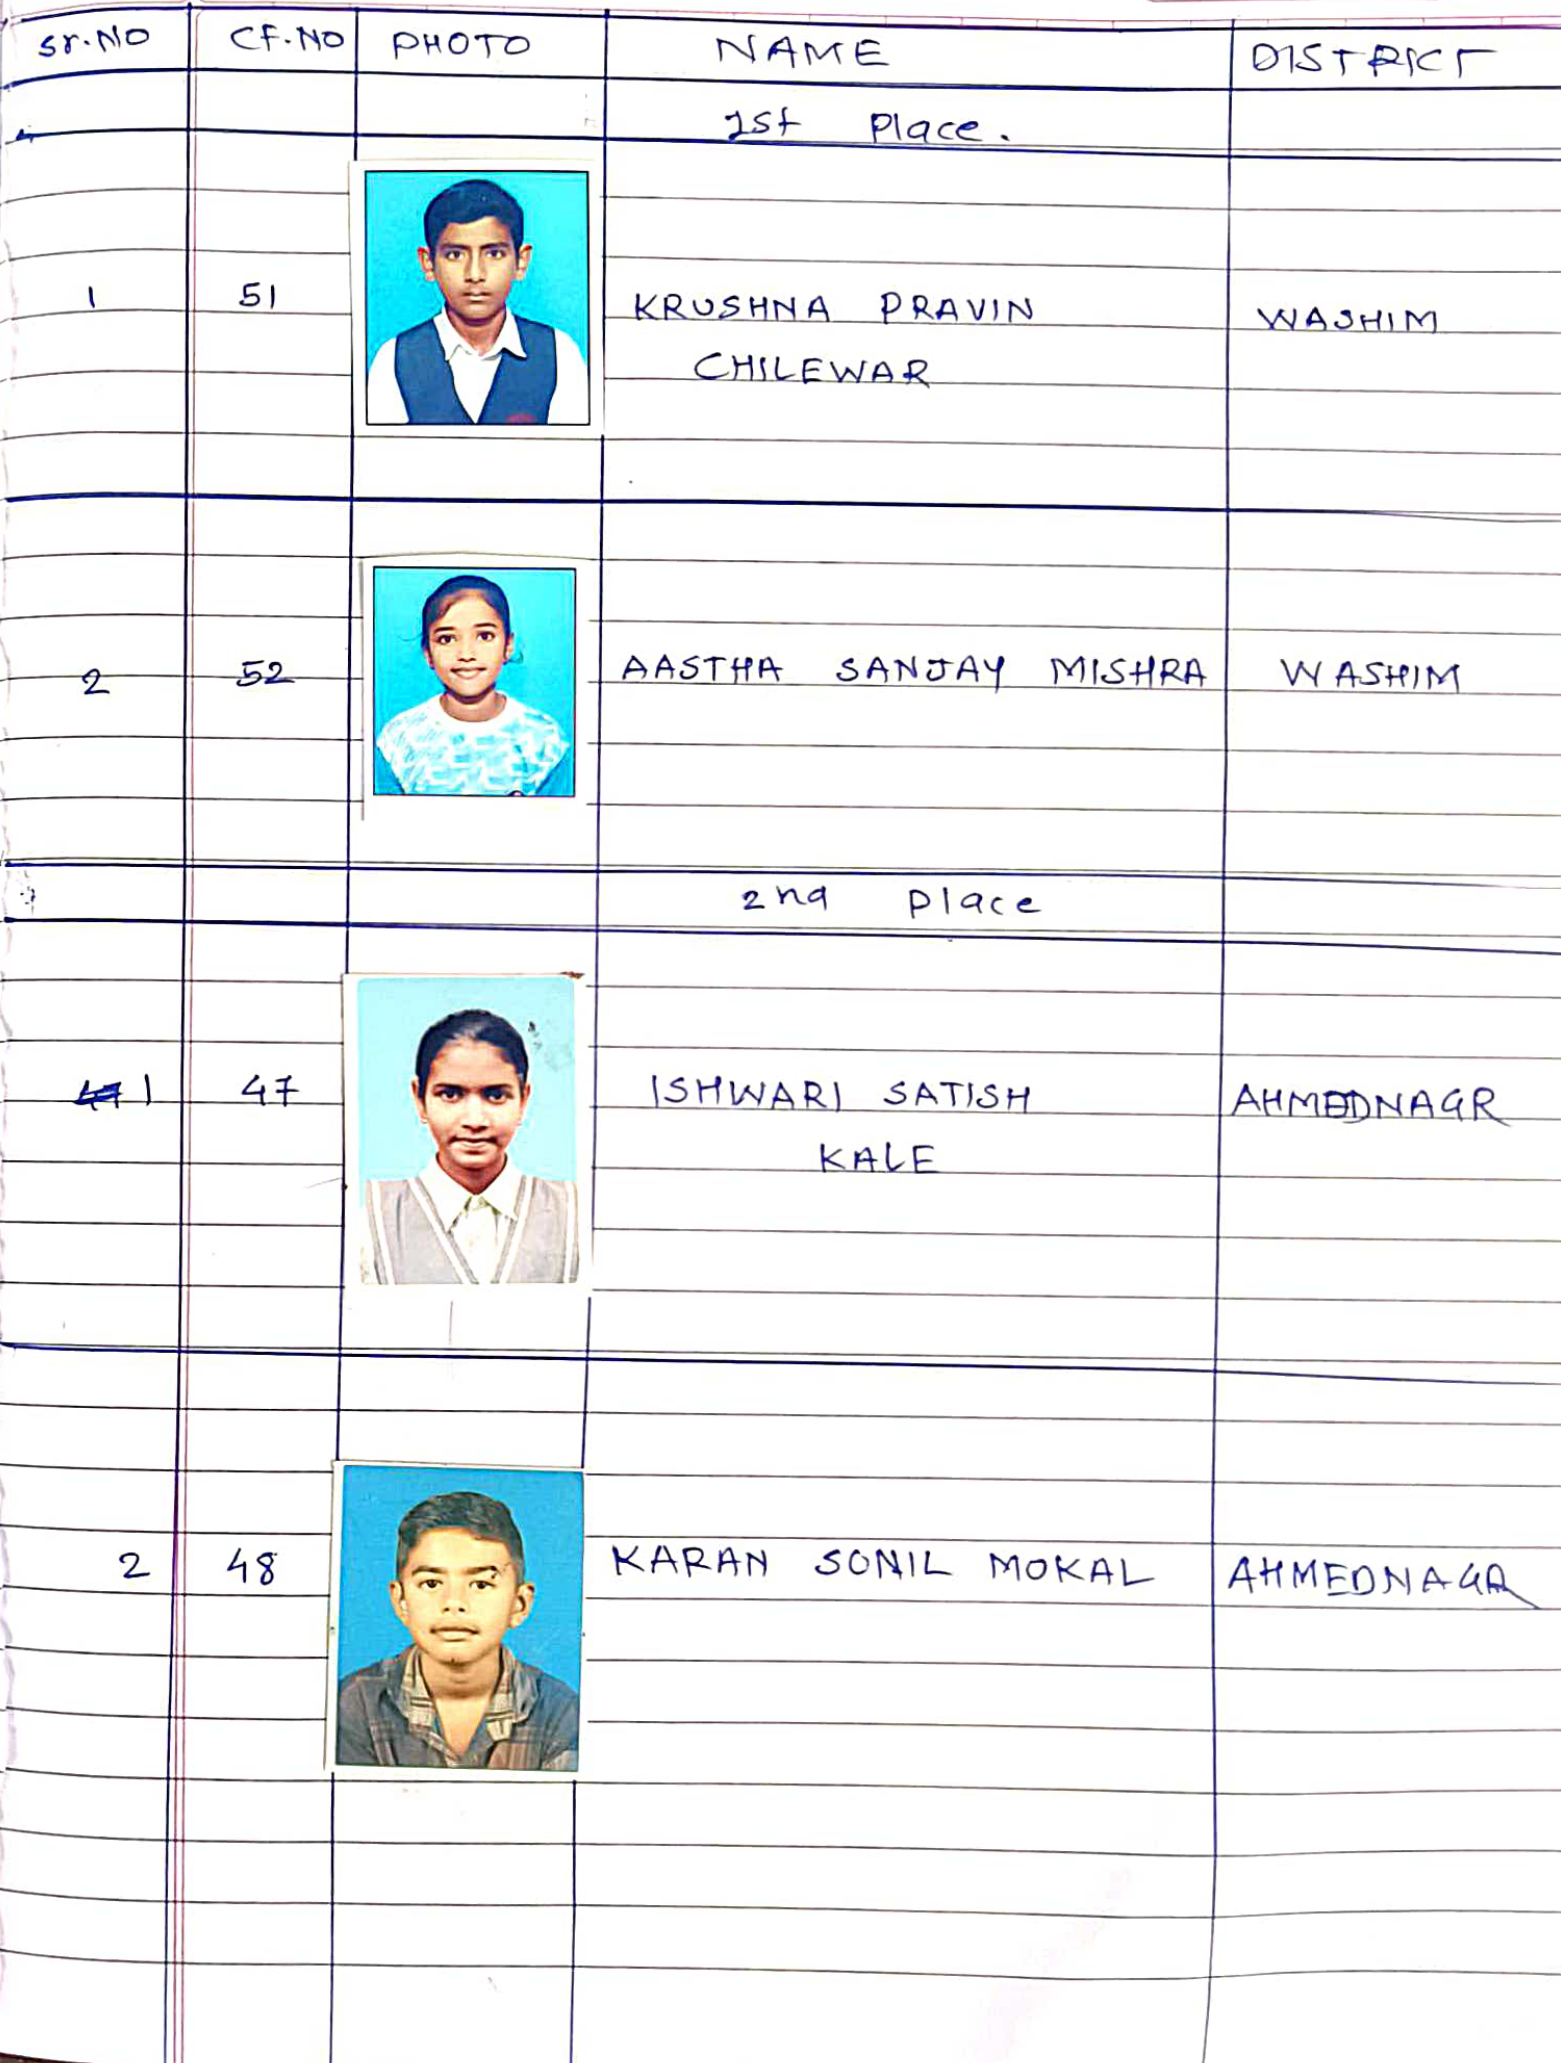 Sr.NO CF.NO PHOTO NAME DISTRICT
1st Place.
1 51 KRUSHNA PRAVIN WASHIM
CHILEWAR
2 52 AASTHA SANJAY MISHRA WASHIM
2nd Place
1 47 ISHWARI SATISH AHMEDNAGR
KALE
2 48 KARAN SONIL MOKAL AHMEDNAGR